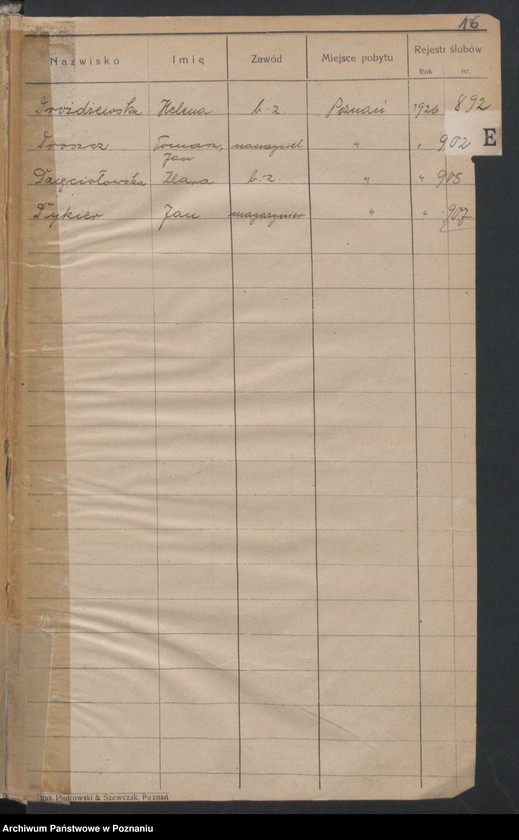 16
Nazwisko Imię Zawód Miejsce pobytu Rejestr ślubów
Rok nr.
Drożdżewska Helena b. z. Poznań 1926 892
Droszcz Tomasz, Jan " " 902
E
Klara b. z. " " 905
Dykier Jan magazynier " " 907
Druk. Piotrowski & Szewczak, Poznań
Archiwum Państwowe w Poznaniu